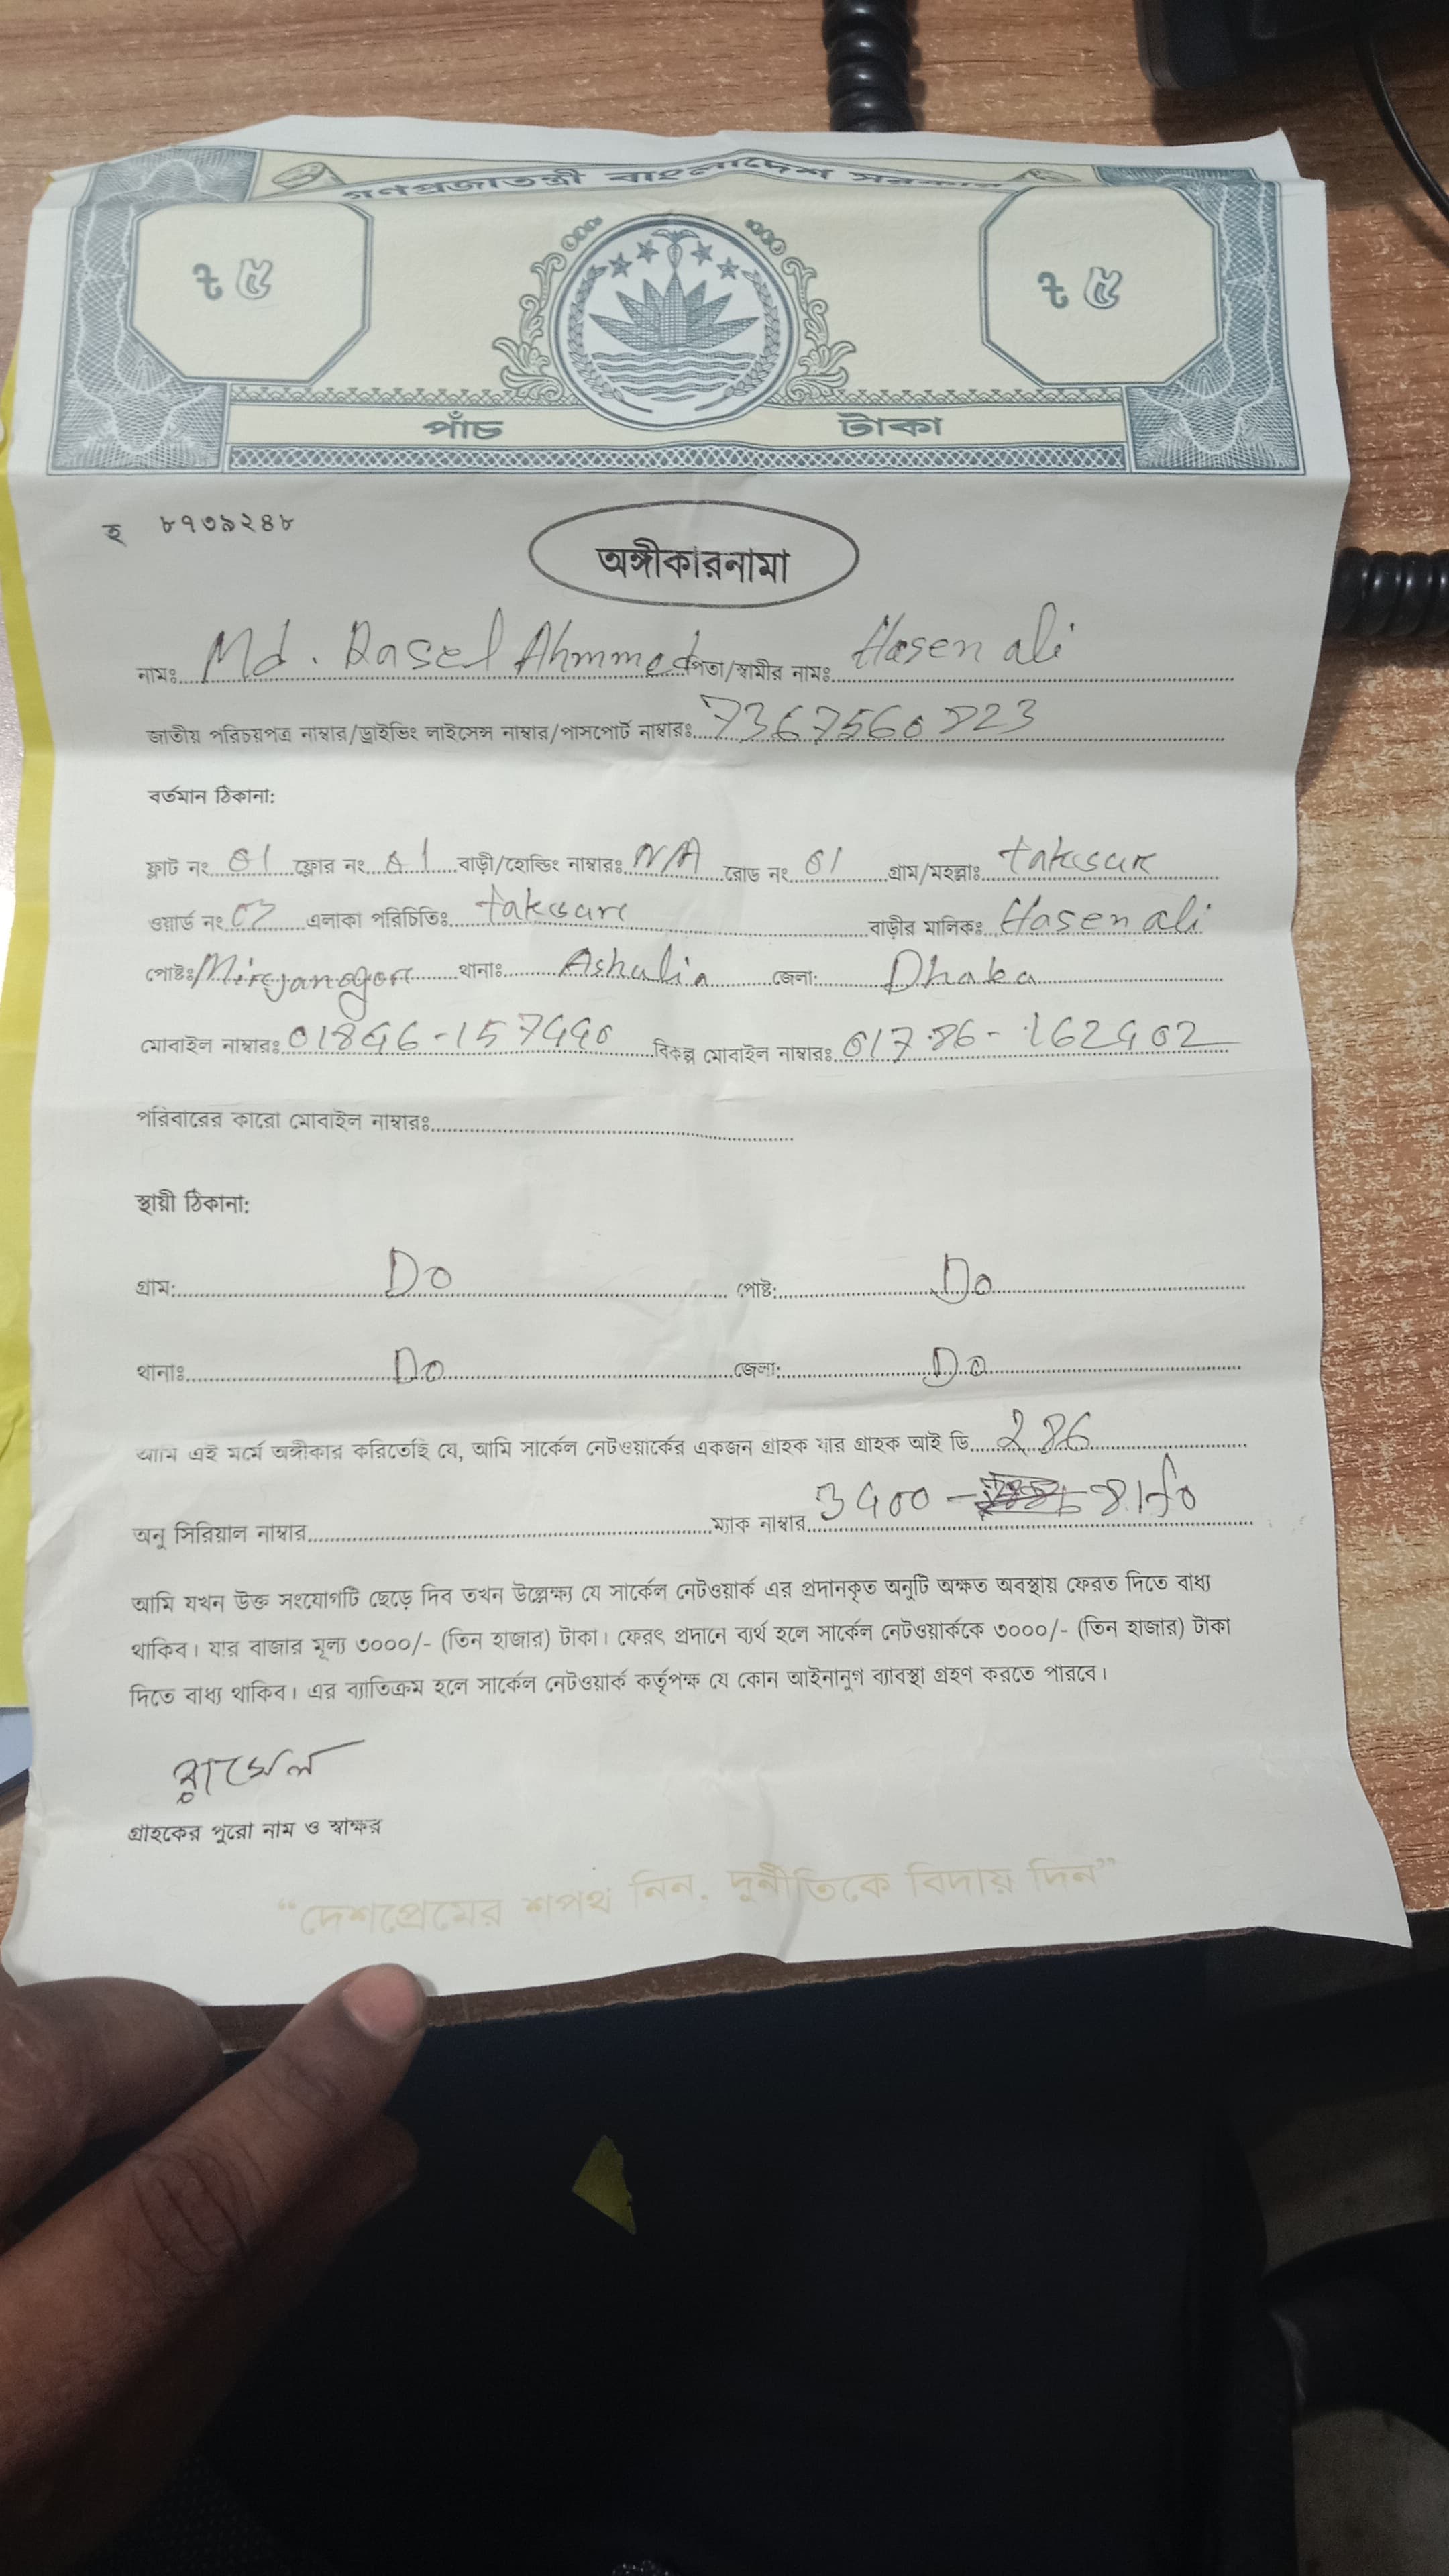 গণপ্রজাতন্ত্রী বাংলাদেশ সরকার
৳ ৫ ৳ ৫
পাঁচ টাকা
হ ৮৭৩৯২৪৮
অঙ্গীকারনামা
নামঃ Md. Rasel Ahmmed পিতা/স্বামীর নামঃ Hasen ali
জাতীয় পরিচয়পত্র নাম্বার/ড্রাইভিং লাইসেন্স নাম্বার/পাসপোর্ট নাম্বারঃ 7367560823
বর্তমান ঠিকানা:
ফ্লাট নং 01 ফ্লোর নং 01 বাড়ী/হোল্ডিং নাম্বারঃ N/A রোড নং 01 গ্রাম/মহল্লাঃ taksur
ওয়ার্ড নং এলাকা পরিচিতিঃ taksur বাড়ীর মালিকঃ Hasen ali
পোষ্টঃ থানাঃ Ashulia জেলা: Dhaka
মোবাইল নাম্বারঃ 01846-157440 বিকল্প মোবাইল নাম্বারঃ 01786-162402
পরিবারের কারো মোবাইল নাম্বারঃ
স্থায়ী ঠিকানা:
গ্রাম: Do পোষ্ট: Do
থানাঃ Do জেলা: Do
আমি এই মর্মে অঙ্গীকার করিতেছি যে, আমি সার্কেল নেটওয়ার্কের একজন গ্রাহক যার গ্রাহক আই ডি 286
অনু সিরিয়াল নাম্বার ম্যাক নাম্বার 3400 -
আমি যখন উক্ত সংযোগটি ছেড়ে দিব তখন উল্লেক্ষ্য যে সার্কেল নেটওয়ার্ক এর প্রদানকৃত অনুটি অক্ষত অবস্থায় ফেরত দিতে বাধ্য
থাকিব। যার বাজার মূল্য ৩০০০/- (তিন হাজার) টাকা। ফেরৎ প্রদানে ব্যর্থ হলে সার্কেল নেটওয়ার্ককে ৩০০০/- (তিন হাজার) টাকা
দিতে বাধ্য থাকিব। এর ব্যাতিক্রম হলে সার্কেল নেটওয়ার্ক কর্তৃপক্ষ যে কোন আইনানুগ ব্যাবস্থা গ্রহণ করতে পারবে।
রাসেল
গ্রাহকের পুরো নাম ও স্বাক্ষর
“দেশপ্রেমের শপথ নিন, দুর্নীতিকে বিদায় দিন”